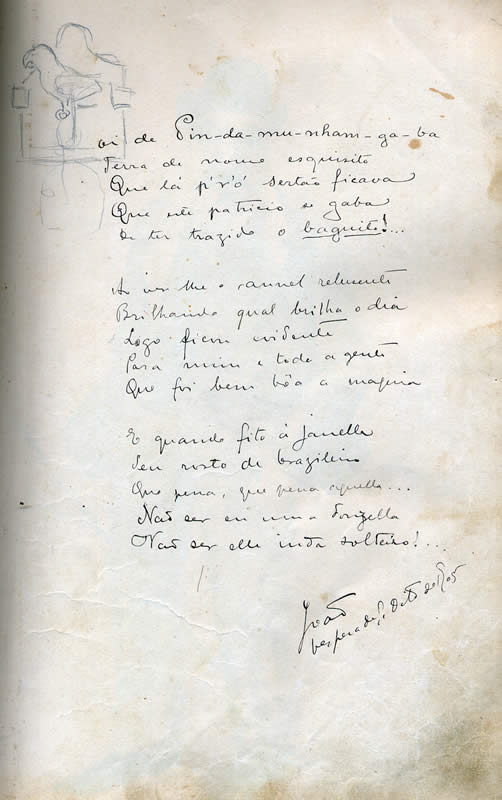 oi de Pin-da-mu-nham-ga-ba
Terra de nome esquisito
Que lá p'r'ó sertão ficava
Que este patricio se gaba
De ter trazido o baguito!...
Ao ver-lhe o annel relusente
Brilhando qual brilha o dia
Logo ficou evidente
Para mim e toda a gente
Que foi bem bôa a maquia
E quando fito á janella
Seu rosto de brazileiro
Que pena, que pena aquella...
Não ser eu uma donzella
Não ser elle inda solteiro!...
João
vespera de